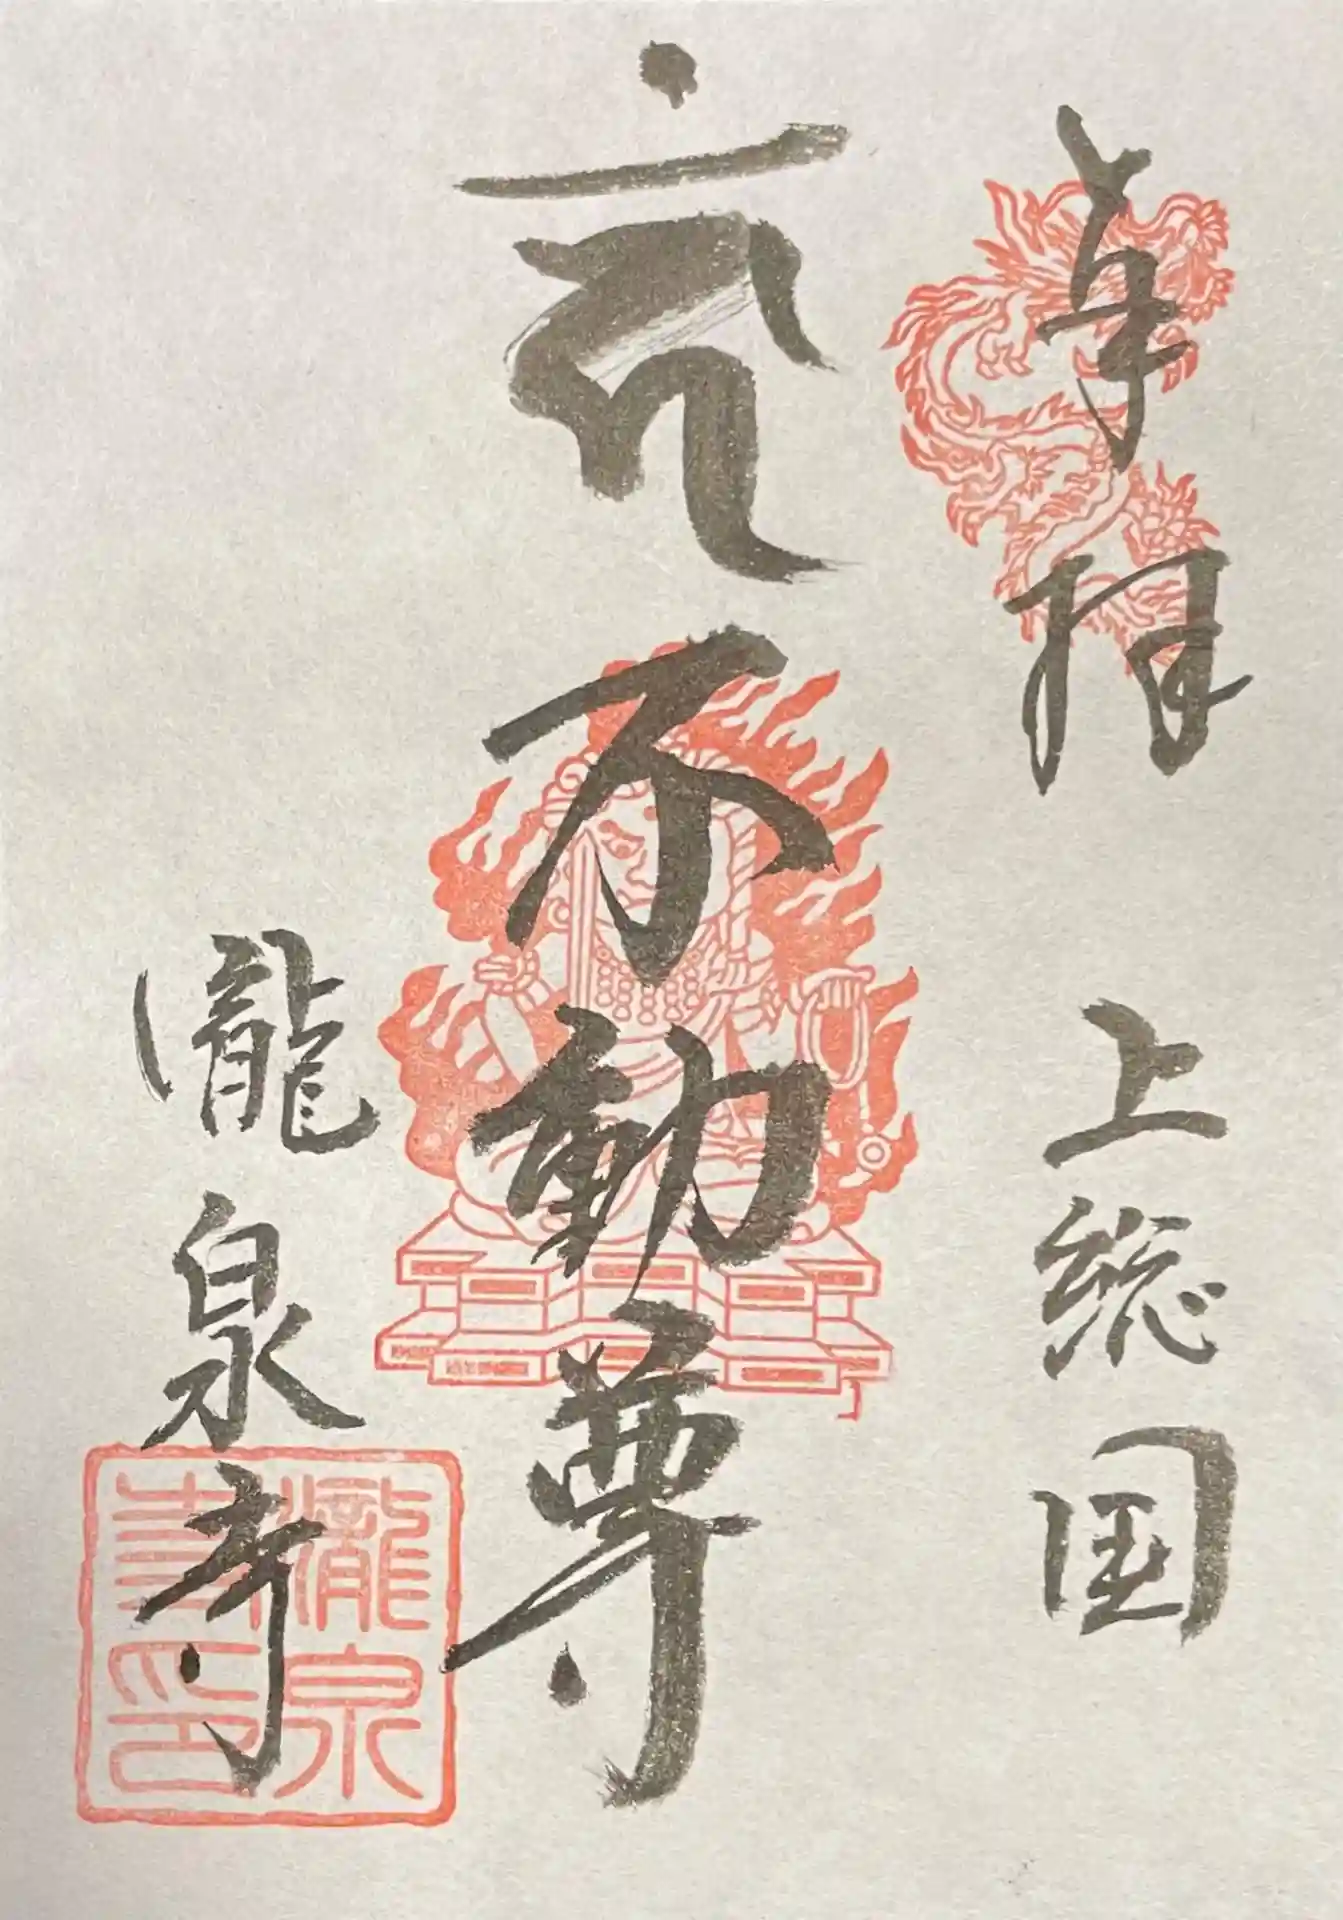 奉拝 上総国
不動尊
瀧泉寺
瀧泉
寺印